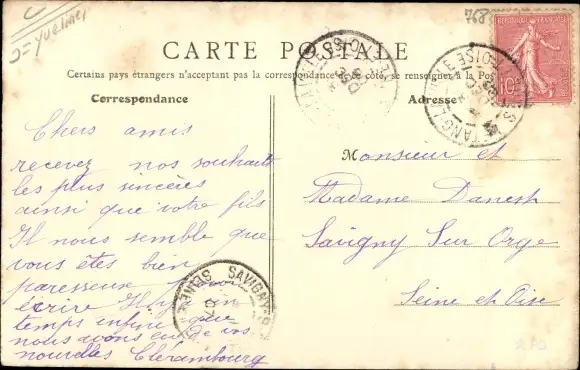 768
CARTE POSTALE
Certains pays étrangers n'acceptant pas la correspondance de ce côté, se renseigner à la Pos
Correspondance
Adresse
REPUBLIQUE FRANÇAISE
10
Chers amis
recevez nos souhaits
les plus sincères
ainsi que votre fils
Il nous semble que
vous êtes bien
paresseux
écrire Il y a un
temps infini que
nous avons eu de vos
nouvelles Clérambourg
Monsieur et
Madame Danest
Savigny Sur Orge
Seine et Oise
SAVIGNY
SEINE